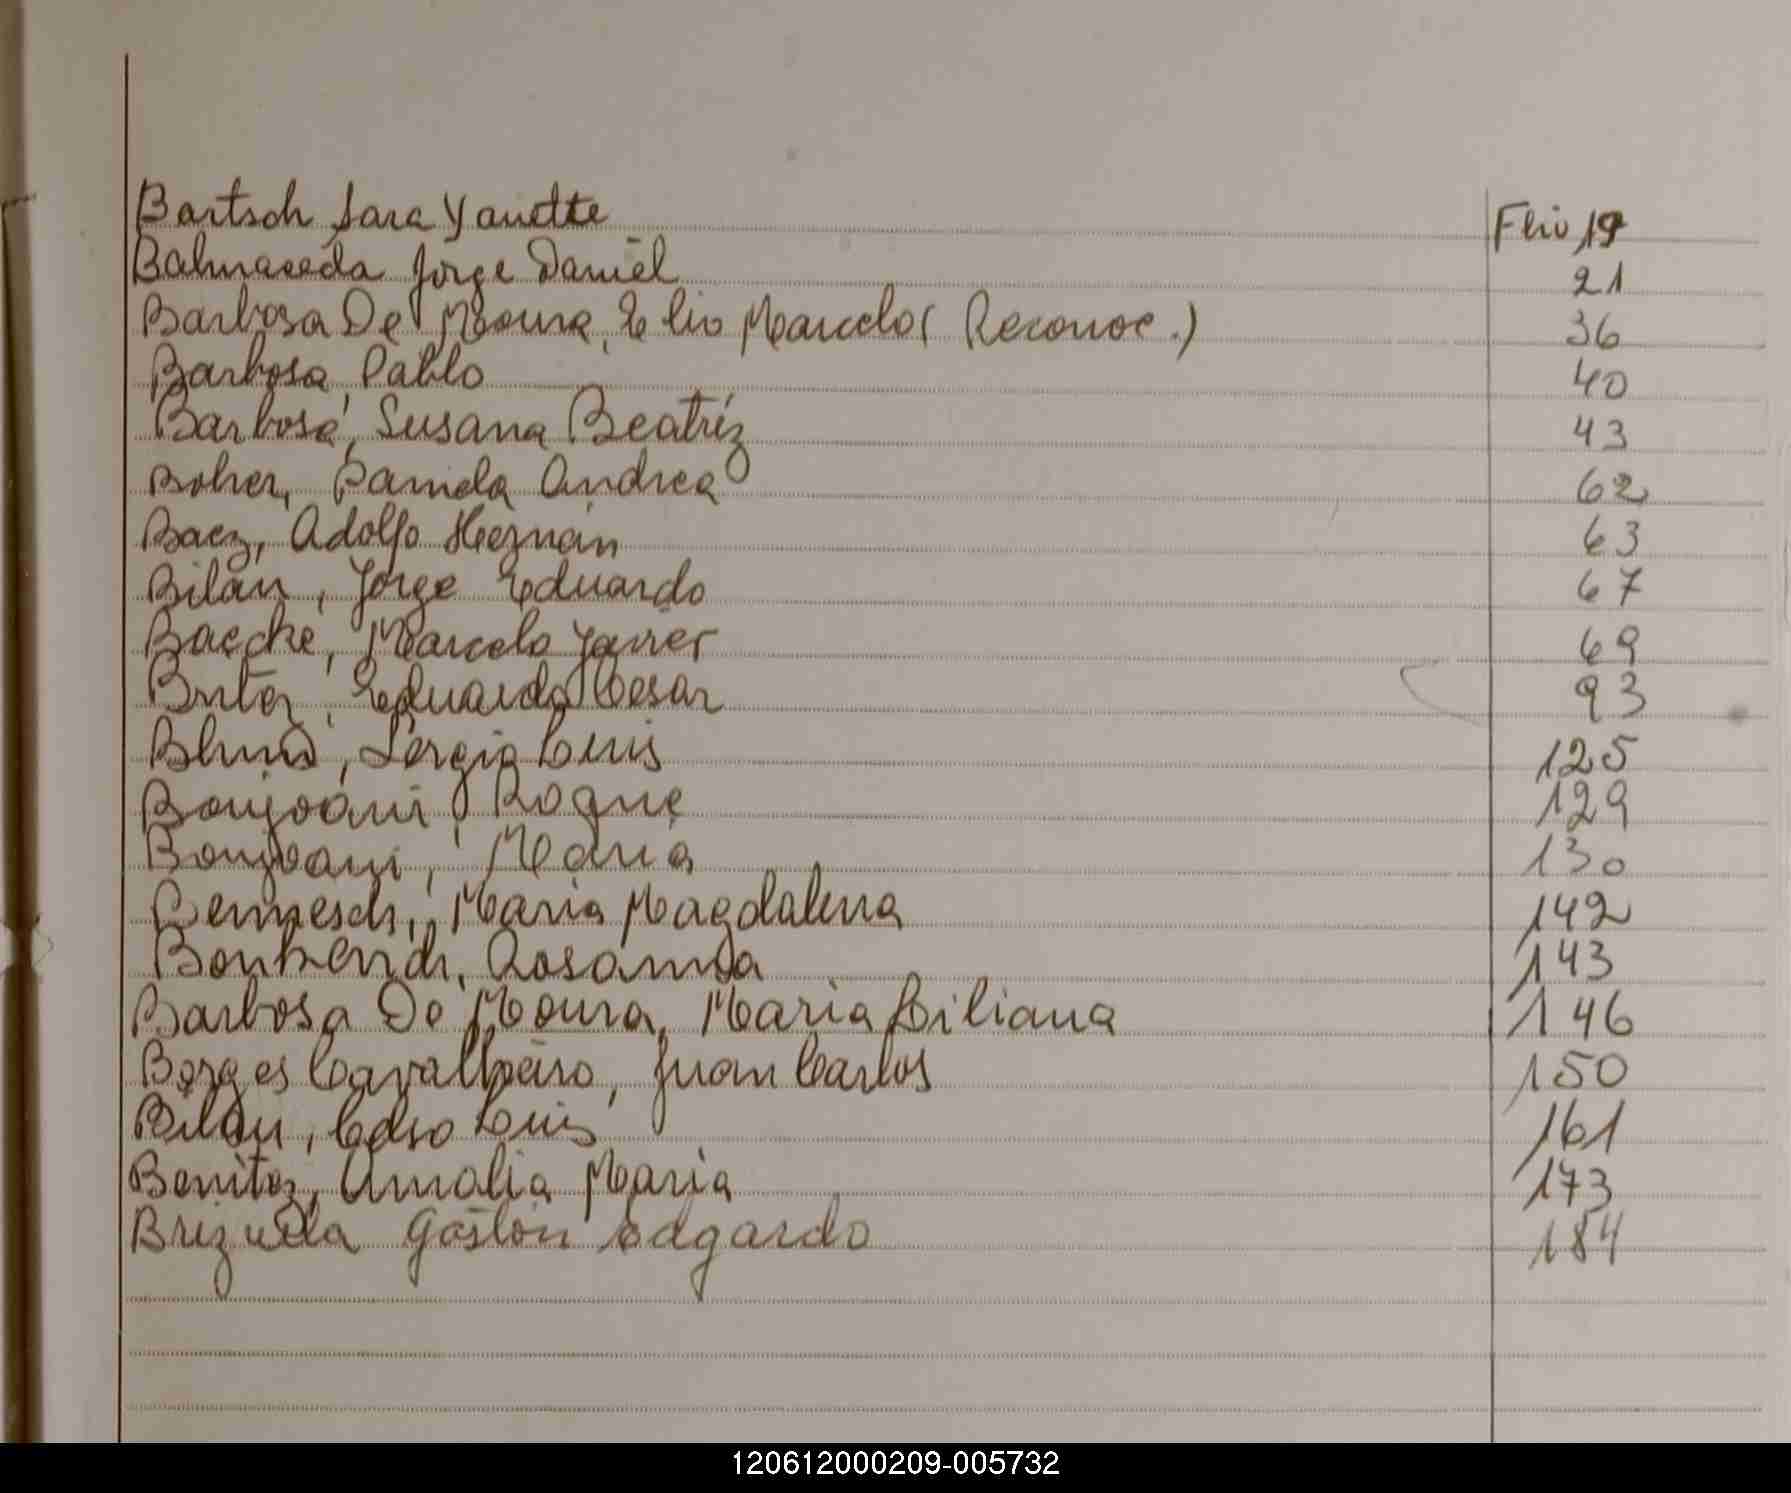 Bartsch Sara Yanette Flio 19
Balmaceda Jorge Daniel 21
Barbosa De Moura, Elio Marcelo (Reconoc.) 36
Barbosa, Pablo 40
Barbosa, Susana Beatríz 43
Boher, Pamela Andrea 62
Baez, Adolfo Hernán 63
Bilan, Jorge Eduardo 67
Marcelo Javier 69
Eduardo Cesar 93
Sergio Luis 125
Bonjoani, Roque 129
Bonjoani, María 130
María Magdalena 142
Rosanna 143
Barbosa De Moura, Maria Liliana 146
Borges Cavalheiro, Juan Carlos 150
Bilan, Celso Luis 161
Benitez, Amalia Maria 173
Brizuela Gastón Edgardo 184
120612000209-005732